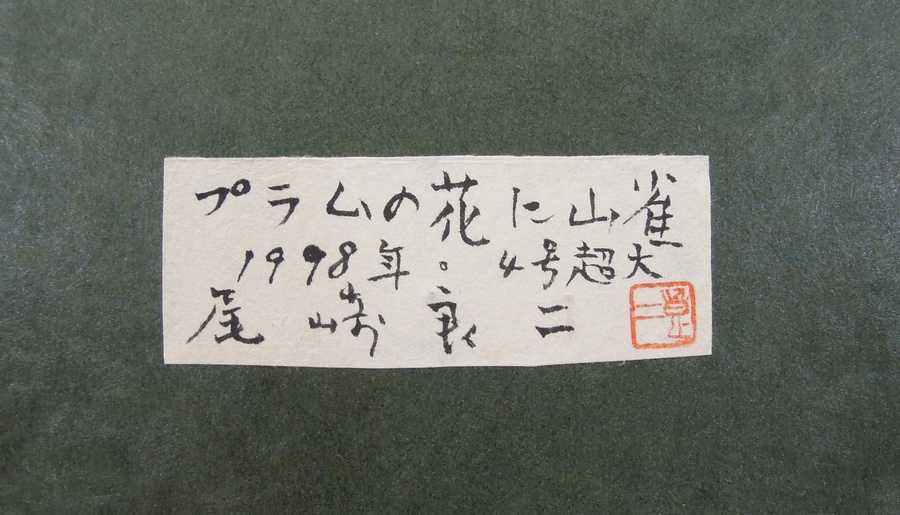 プラムの花に山雀
1998年。4号超大
尾崎良二
良二